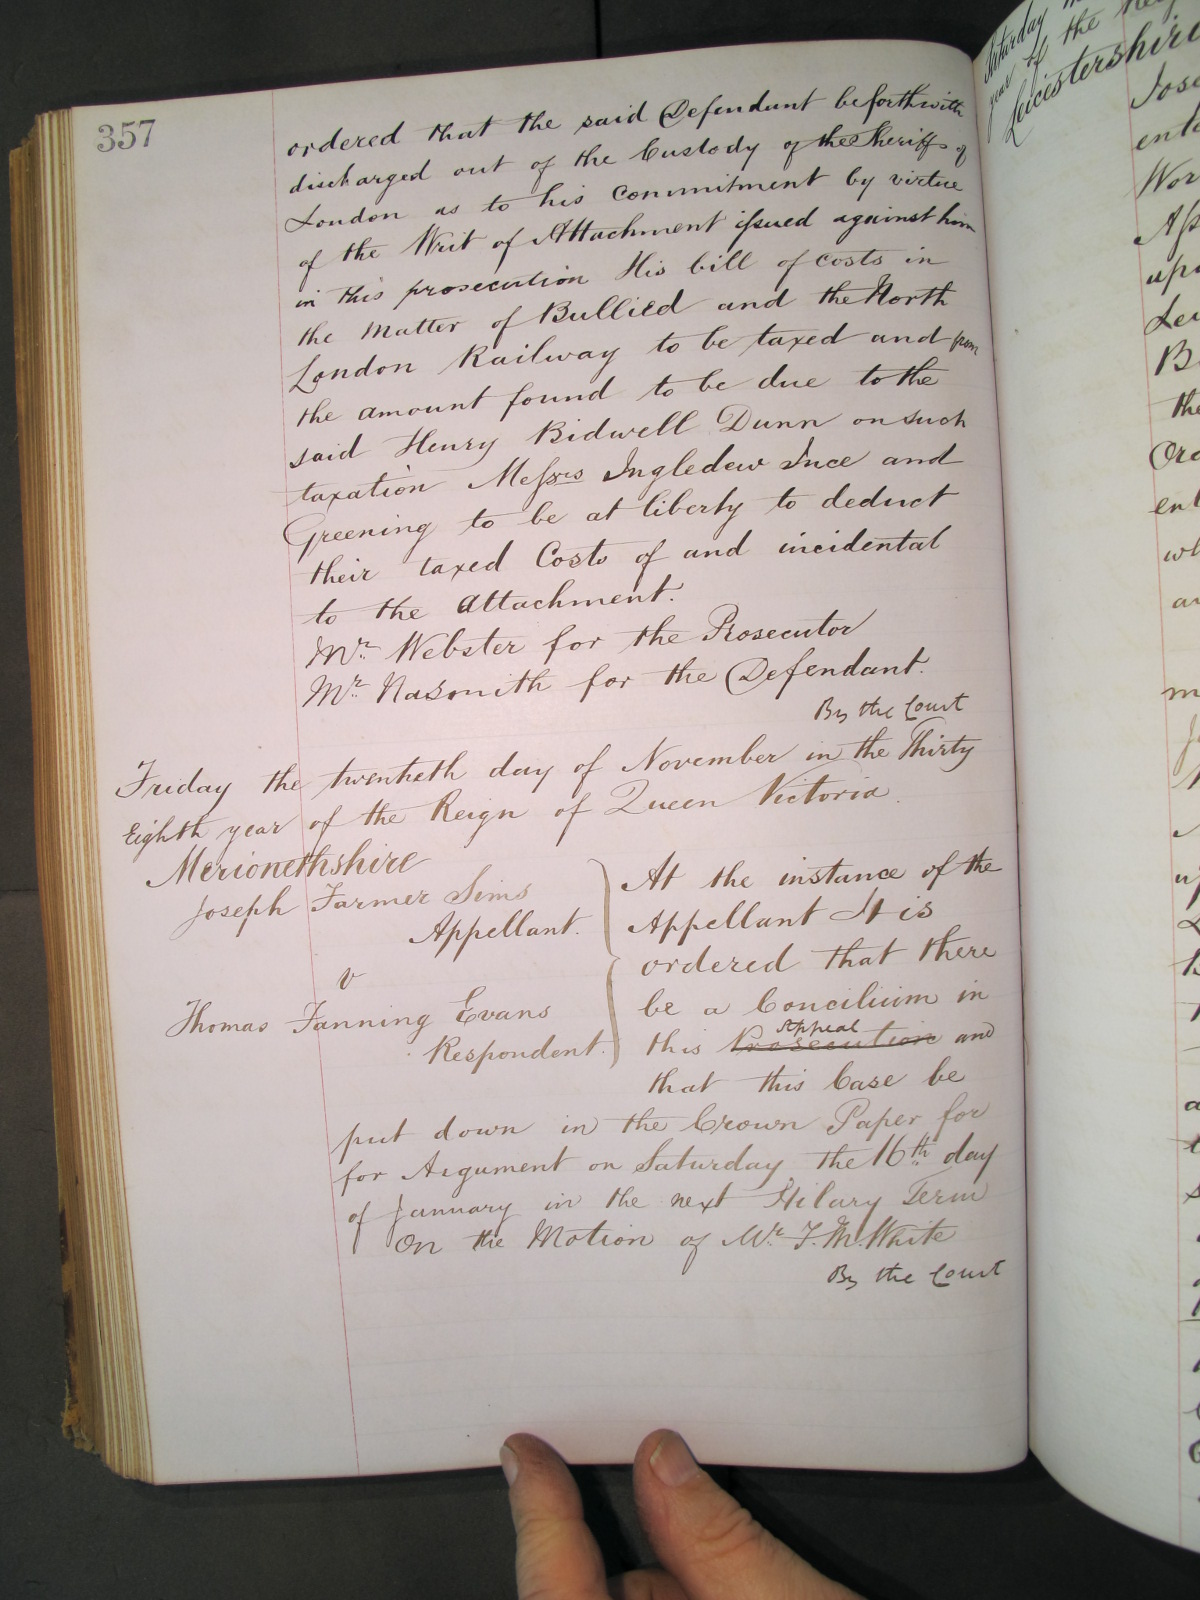 357
ordered that the said Defendant be forthwith
discharged out of the Custody of the Sheriffs of
London as to his commitment by virtue
of the Writ of Attachment issued against him
in this prosecution His bill of costs in
the matter of Bullied and the North
London Railway to be taxed and from
the amount found to be due to the
said Henry Bidwell Dunn on such
taxation Messrs Ingledew Ince and
Greening to be at liberty to deduct
their taxed Costs of and incidental
to the Attachment.
Mr. Webster for the Prosecutor
Mr. Nasmith for the Defendant.
By the Court
Friday the twentieth day of November in the Thirty
Eighth year of the Reign of Queen Victoria.
Merionethshire
Joseph Farmer Sims
Appellant.
v
Thomas Fanning Evans
Respondent.
At the instance of the
Appellant It is
ordered that there
be a Concilium in
this Prosecution Appeal and
that this Case be
put down in the Crown Paper for
for Argument on Saturday the 16th day
of January in the next Hilary Term
On the Motion of Mr. F. M. White
By the Court
Saturday
year of the
Leicestershire